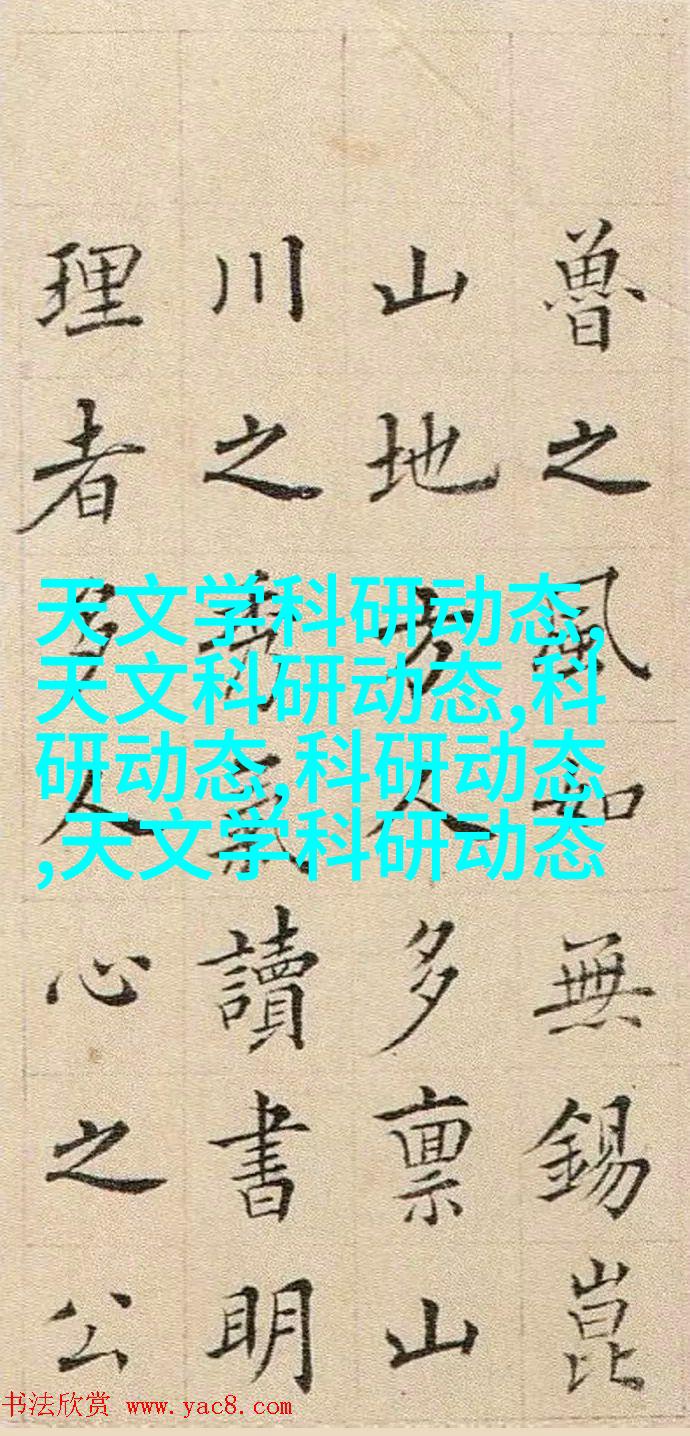 魯之風如無錫崑
山地方人多禀山
川之秀氣讀書明
理者多人心之公
天文学科研动态,
天文科研动态,科
研动态,科研动态
,天文学科研动态
书法欣赏 www.yac8.com